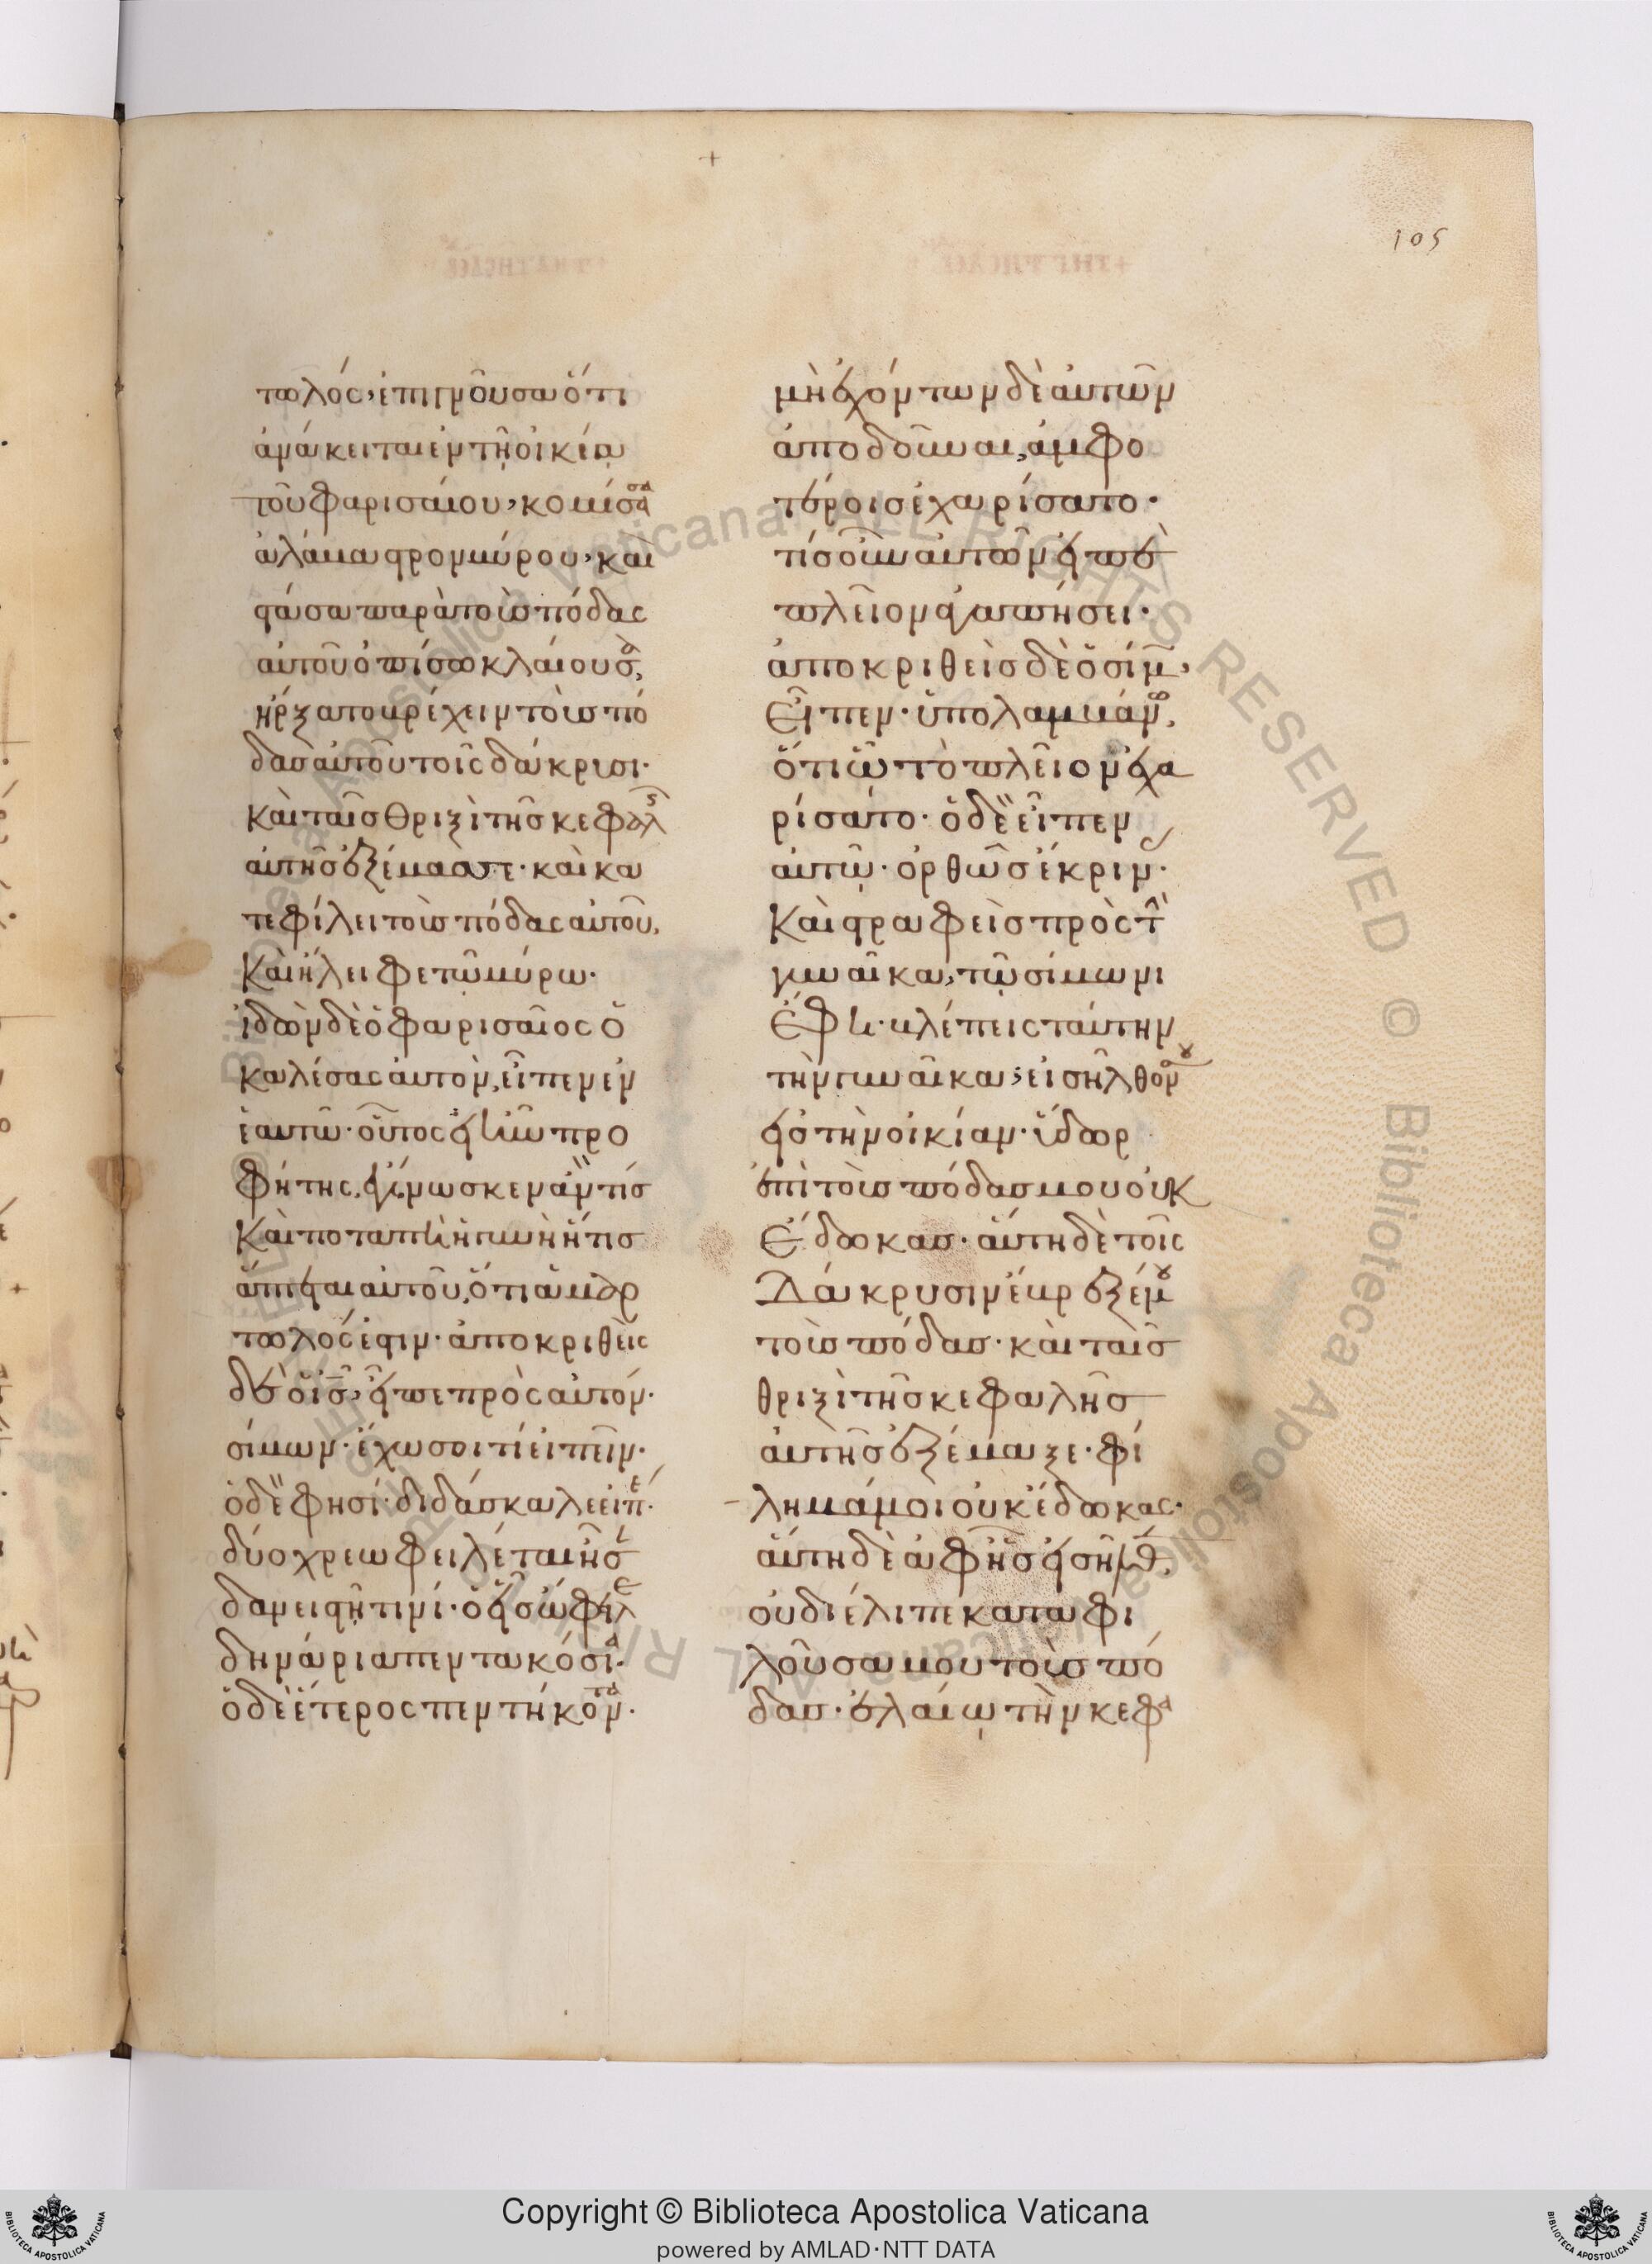 105
τωλός, ἐπιγνοῦσα ὅτι
ἀνάκειται ἐν τῇ οἰκία
τοῦ φαρισαίου, κομίσασα
ἀλάβαστρον μύρου, καὶ
στάσα παρὰ τοὺς πόδας
αὐτοῦ ὀπίσω κλαίουσα,
ἤρξατο βρέχειν τοὺς πό
δας αὐτοῦ τοῖς δάκρυσι·
καὶ ταῖς θριξὶ τῆς κεφαλῆς
αὐτῆς ἐξέμασσε· καὶ κα
τεφίλει τοὺς πόδας αὐτοῦ,
καὶ ἤλειφε τῷ μύρω·
ἰδὼν δὲ ὁ φαρισαῖος ὁ
καλέσας αὐτὸν, εἶπεν ἐν
ἑαυτῶ· οὗτος εἰ ἦν προ
φήτης, ἐγίνωσκεν ἂν τίς
καὶ ποταπὴ ἡ γυνὴ ἥτις
ἅπτεται αὐτοῦ, ὅτι ἁμαρ
τωλός ἐστιν· ἀποκριθεὶς
δὲ ὁ ις, εἶπε πρὸς αὐτόν·
σίμων· ἔχω σοι τί εἰπεῖν·
ὁ δὲ φησί· διδάσκαλε εἰπέ·
δύο χρεωφειλέται ἦσαν
δανειστῆ τινί· ὁ εἷς ὤφειλε
δηνάρια πεντακόσια·
ὁ δὲ ἕτερος πεντήκοντα·
μὴ ἐχόντων δὲ αὐτῶν
ἀποδοῦναι, ἀμφο
τέροις ἐχαρίσατο·
τίς οὖν αὐτῶν εἰπὲ
πλεῖον ἀγαπήσει·
ἀποκριθεὶς δὲ ὁ σίμων,
εἶπεν· ὑπολαμβάνω,
ὅτι ὧ τὸ πλεῖον ἐχα
ρίσατο· ὁ δὲ εἶπεν
αὐτῷ· ὀρθῶς ἔκρινας·
καὶ στραφεὶς πρὸς τὴν
γυναῖκα, τῷ σίμωνι
ἔφη· βλέπεις ταύτην
τὴν γυναῖκα; εἰσῆλθόν σου
εἰς τὴν οἰκίαν· ὕδωρ
ἐπὶ τοὺς πόδας μου οὐκ
ἔδωκας· αὕτη δὲ τοῖς
δάκρυσιν ἔβρεξέ μου
τοὺς πόδας· καὶ ταῖς
θριξὶ τῆς κεφαλῆς
αὐτῆς ἐξέμαξε· φί
λημά μοι οὐκ ἔδωκας·
αὕτη δὲ ἀφ' ἧς εἰσῆλθεν,
οὐ διέλιπε καταφι
λοῦσα μου τοὺς πό
δας· ἐλαίῳ τὴν κεφα
Copyright © Biblioteca Apostolica Vaticana
powered by AMLAD·NTT DATA